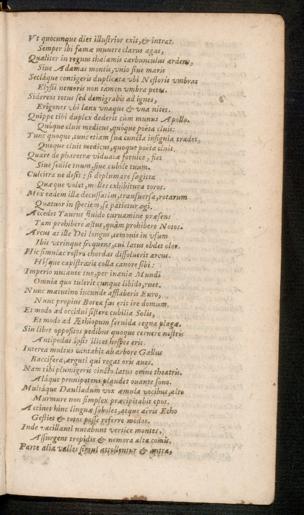 Vt quocunque diei illustrior exit, & intrat.
Semper ibi famæ muuere clarus agat,
Qualiter in regum thalamis carbunculus ardens,
Siue Adamas montis, vnio siue maris
Sectâque contigeris duplicata vbi Nestoris vmbras
Elysii nemoris non tamen vmbra petas.
Sidereos totus sed demigrabis ad ignes,
Erigone vbi lanx vnaque & vna nites.
Quippe tibi duplex dederit cùm munus Apollo.
Quíque cluit medicus, quíque poëta cluit:
Tunc quoque, tunc etiam sua cuncta insignia tradet,
Quoque cluit medicus, quoque poëta cluit.
Quare de pharetra viduata fotuice, fiet
Siue sutile tuum, siue cubile tuum.
Culcitra ne desit; si deplumare sagitta
Quæque volet, molles exhibitura toros.
Mox eadem illa decussatim, transuersa, rotarum
Quatuor in speciem, se patietur agi.
Accedet Taurus fluido curuamine præsens
Tam prohibere æstus, quàm prohibere Notos.
Arcus at ille Dei longus, temonis in vsum
Ibit vtrinque sequens, cui latus obdet olor.
Hic simniæ rostro chordas dissoluerit arcus.
Hísque capistraris colla canore sibi:
Imperio nucante tuo, per inania Mundi
Omnia quo tulerit cunque libido, ruet.
Nunc matutino iucunde afflaberis Euro,
Nunc propius Boreæ fas erit ire domum.
Et modò ad occidui sistere cubilia Solis,
Et modò ad Æthiopum feruida regna plagæ.
Sin libet oppositos pedibus quoque cernere nostris
Antipodas ipsis illicet hospes eris.
Interea multus ventabis ab arbore Gallus
Baccifera, argui qui regat oris aues.
Nam tibi plumigeris cinctò latus omine theatris.
Atáque pennipotens plaudet ouante sono.
Multáque Dauliadum vox æmula vocibus, alto
Murmure non simplex præcipitabit epos.
Ac tineat hinc linguæ subsiles, atque aëris Echo
Gestiet & totos posse referre modos.
Inde vacillanti nutabunt vertice montes,
Assurgens trepidis & nemora alta comis,
Parte alia valles simul attollentur & antra,